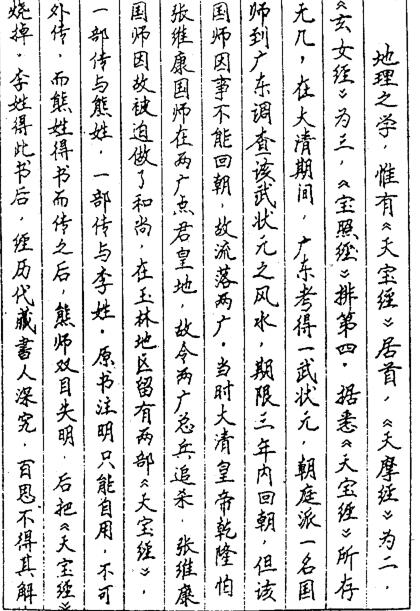 地理之学，惟有《天宝经》居首，《天摩经》为二，
《玄女经》为三，《宝照经》排第四。据悉《天宝经》所存
无几，在大清期间，广东考得一武状元，朝庭派一名国
师到广东调查该武状元之风水，期限三年内回朝，但该
国师因事不能回朝，故流落两广。当时大清皇帝乾隆怕
张维康国师在两广点君皇地，故令两广总兵追杀，张维康
国师因故被迫做了和尚，在玉林地区留有两部《天宝经》，
一部传与熊姓，一部传与李姓。原书注明只能自用，不可
外传，而熊姓得书而传之后，熊师双目失明，后把《天宝经》
烧掉，李姓得此书后，经历代藏书人深究，百思不得其解